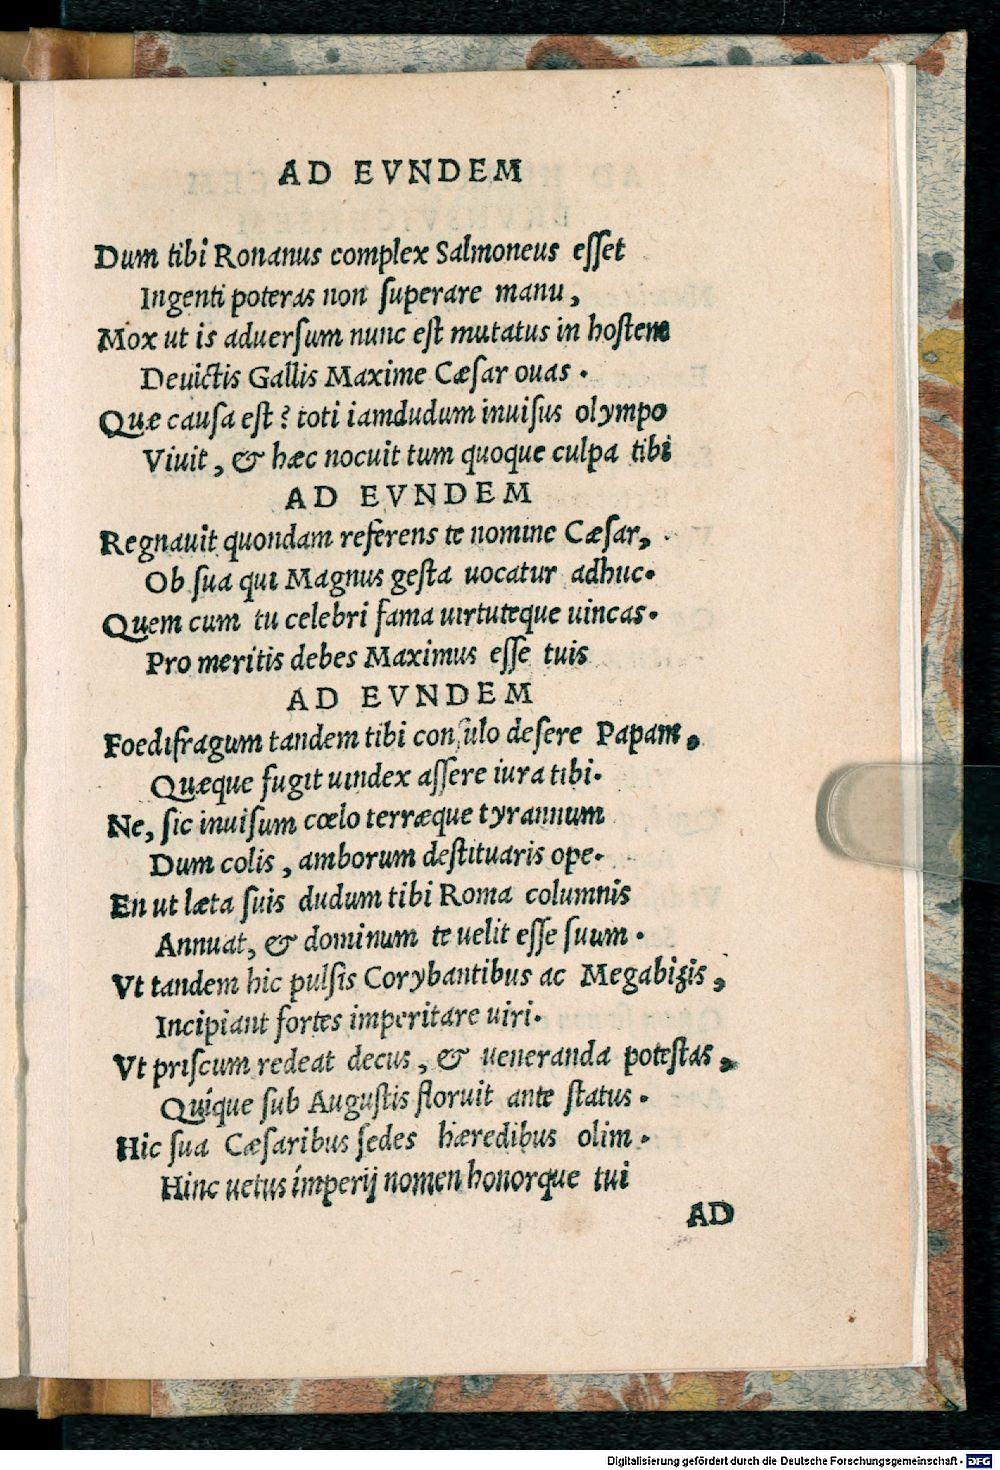 AD EVNDEM
Dum tibi Ronanus complex Salmoneus eſſet
Ingenti poteras non ſuperare manu,
Mox ut is aduerſum nunc eſt mutatus in hoſtem
Deuictis Gallis Maxime Cæſar ouas.
Quæ cauſa eſt? toti iamdudum inuiſus olympo
Viuit, & hæc nocuit tum quoque culpa tibi
AD EVNDEM
Regnauit quondam referens te nomine Cæſar,
Ob ſua qui Magnus geſta uocatur adhuc.
Quem cum tu celebri fama uirtuteque uincas.
Pro meritis debes Maximus eſſe tuis
AD EVNDEM
Foedifragum tandem tibi conſulo deſere Papam,
Quæque fugit uindex aſſere iura tibi.
Ne, ſic inuiſum cœlo terræque tyrannum
Dum colis, amborum deſtituaris ope.
En ut læta ſuis dudum tibi Roma columnis
Annuat, & dominum te uelit eſſe ſuum.
Vt tandem hic pulſis Corybantibus ac Megabizis,
Incipiant fortes imperitare uiri.
Vt priſcum redeat decus, & ueneranda poteſtas,
Quique ſub Auguſtis floruit ante ſtatus.
Hic ſua Cæſaribus ſedes hæredibus olim.
Hinc uetus imperij nomen honorque tui
AD
Digitalisierung gefördert durch die Deutsche Forschungsgemeinschaft - DFG